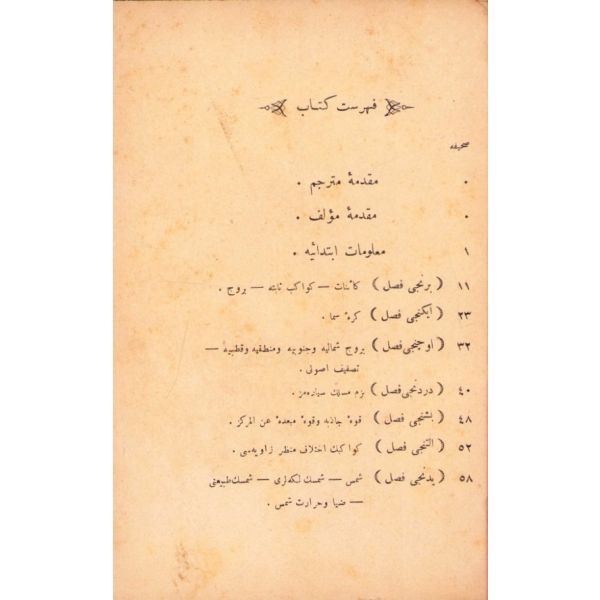 فهرست کتاب
صحیفه
٠ مقدمهٔ مترجم .
٠ مقدمهٔ مؤلف .
١ معلومات ابتدائیه .
١١ ( برنجی فصل ) کائنات — کواکب ثابته — بروج .
٢٣ ( ایکنجی فصل ) کرهٔ سما .
٣٢ ( اوچنجی فصل ) بروج شمالیه وجنوبیه ومنطقیه وقطبیه —
تصفیف اصولی .
٤٠ ( دردنجی فصل ) بزم سیاره‌مز .
٤٨ ( بشنجی فصل ) قوهٔ جاذبه وقوهٔ مبعده عن المرکز .
٥٢ ( التنجی فصل ) کواکبك اختلاف منظر زاویه‌سی .
٥٨ ( یدنجی فصل ) شمس — شمسك لکه‌لری — شمسك طبیعتی
— ضیا وحرارت شمس .